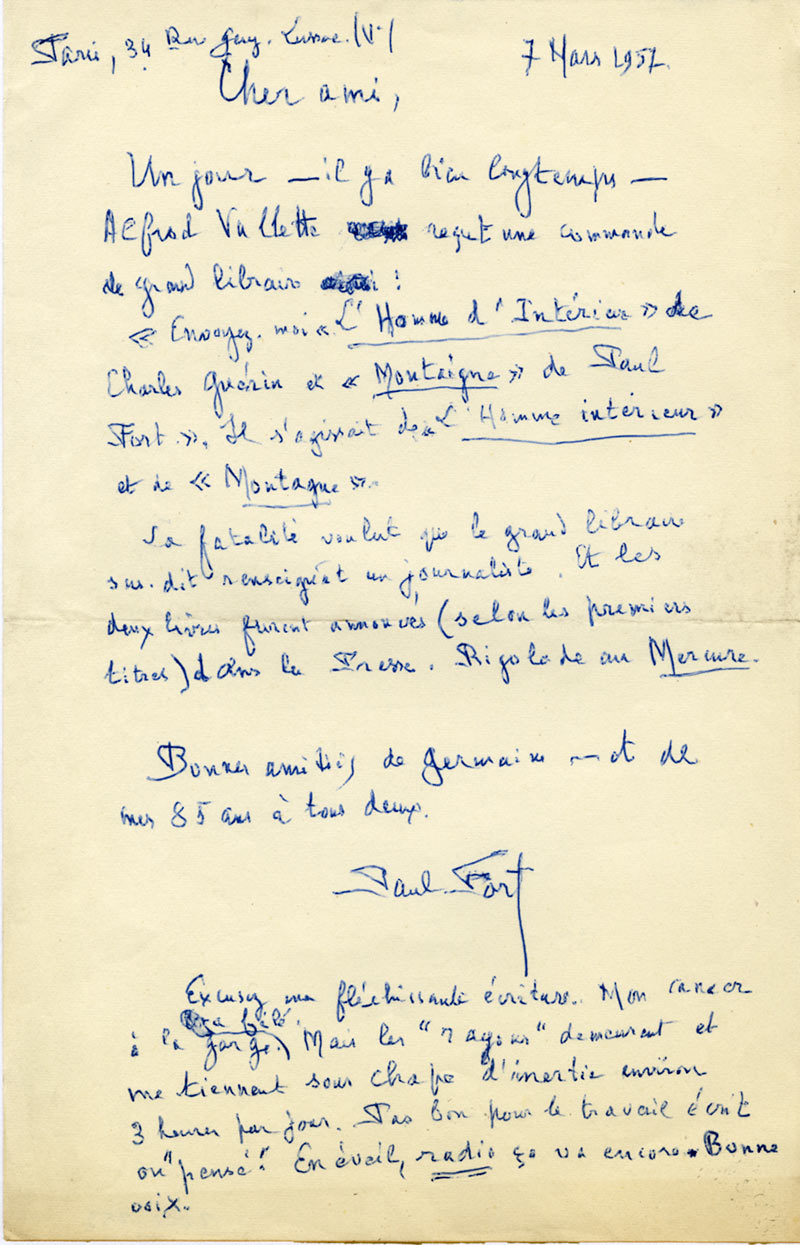 Paris, 34 Rue Gay-Lussac (Ve)
7 Mars 1957.
Cher ami,
Un jour — il y a bien longtemps —
Alfred Vallette reçut une commande
de grand libraire :
« Envoyez-moi « L'Homme d'Intérieur » de
Charles Guérin et « Montaigne » de Paul
Fort ». Il s'agissait de « L'Homme intérieur »
et de « Montagne ».
La fatalité voulut que le grand libraire
sus-dit renseignât un journaliste. Et les
deux livres furent annoncés (selon les premiers
titres) dans la Presse. Rigolade au Mercure.
Bonnes amitiés de Germaine — et de
mes 85 ans à tous deux.
Paul Fort
Excusez ma fléchissante écriture. Mon cancer
à la gorge. Mais les "rayons" demeurent et
me tiennent sous chape d'inertie environ
3 heures par jour. Pas bon pour le travail écrit
ou "pensé". En éveil, radio ça va encore. Bonne
voix.